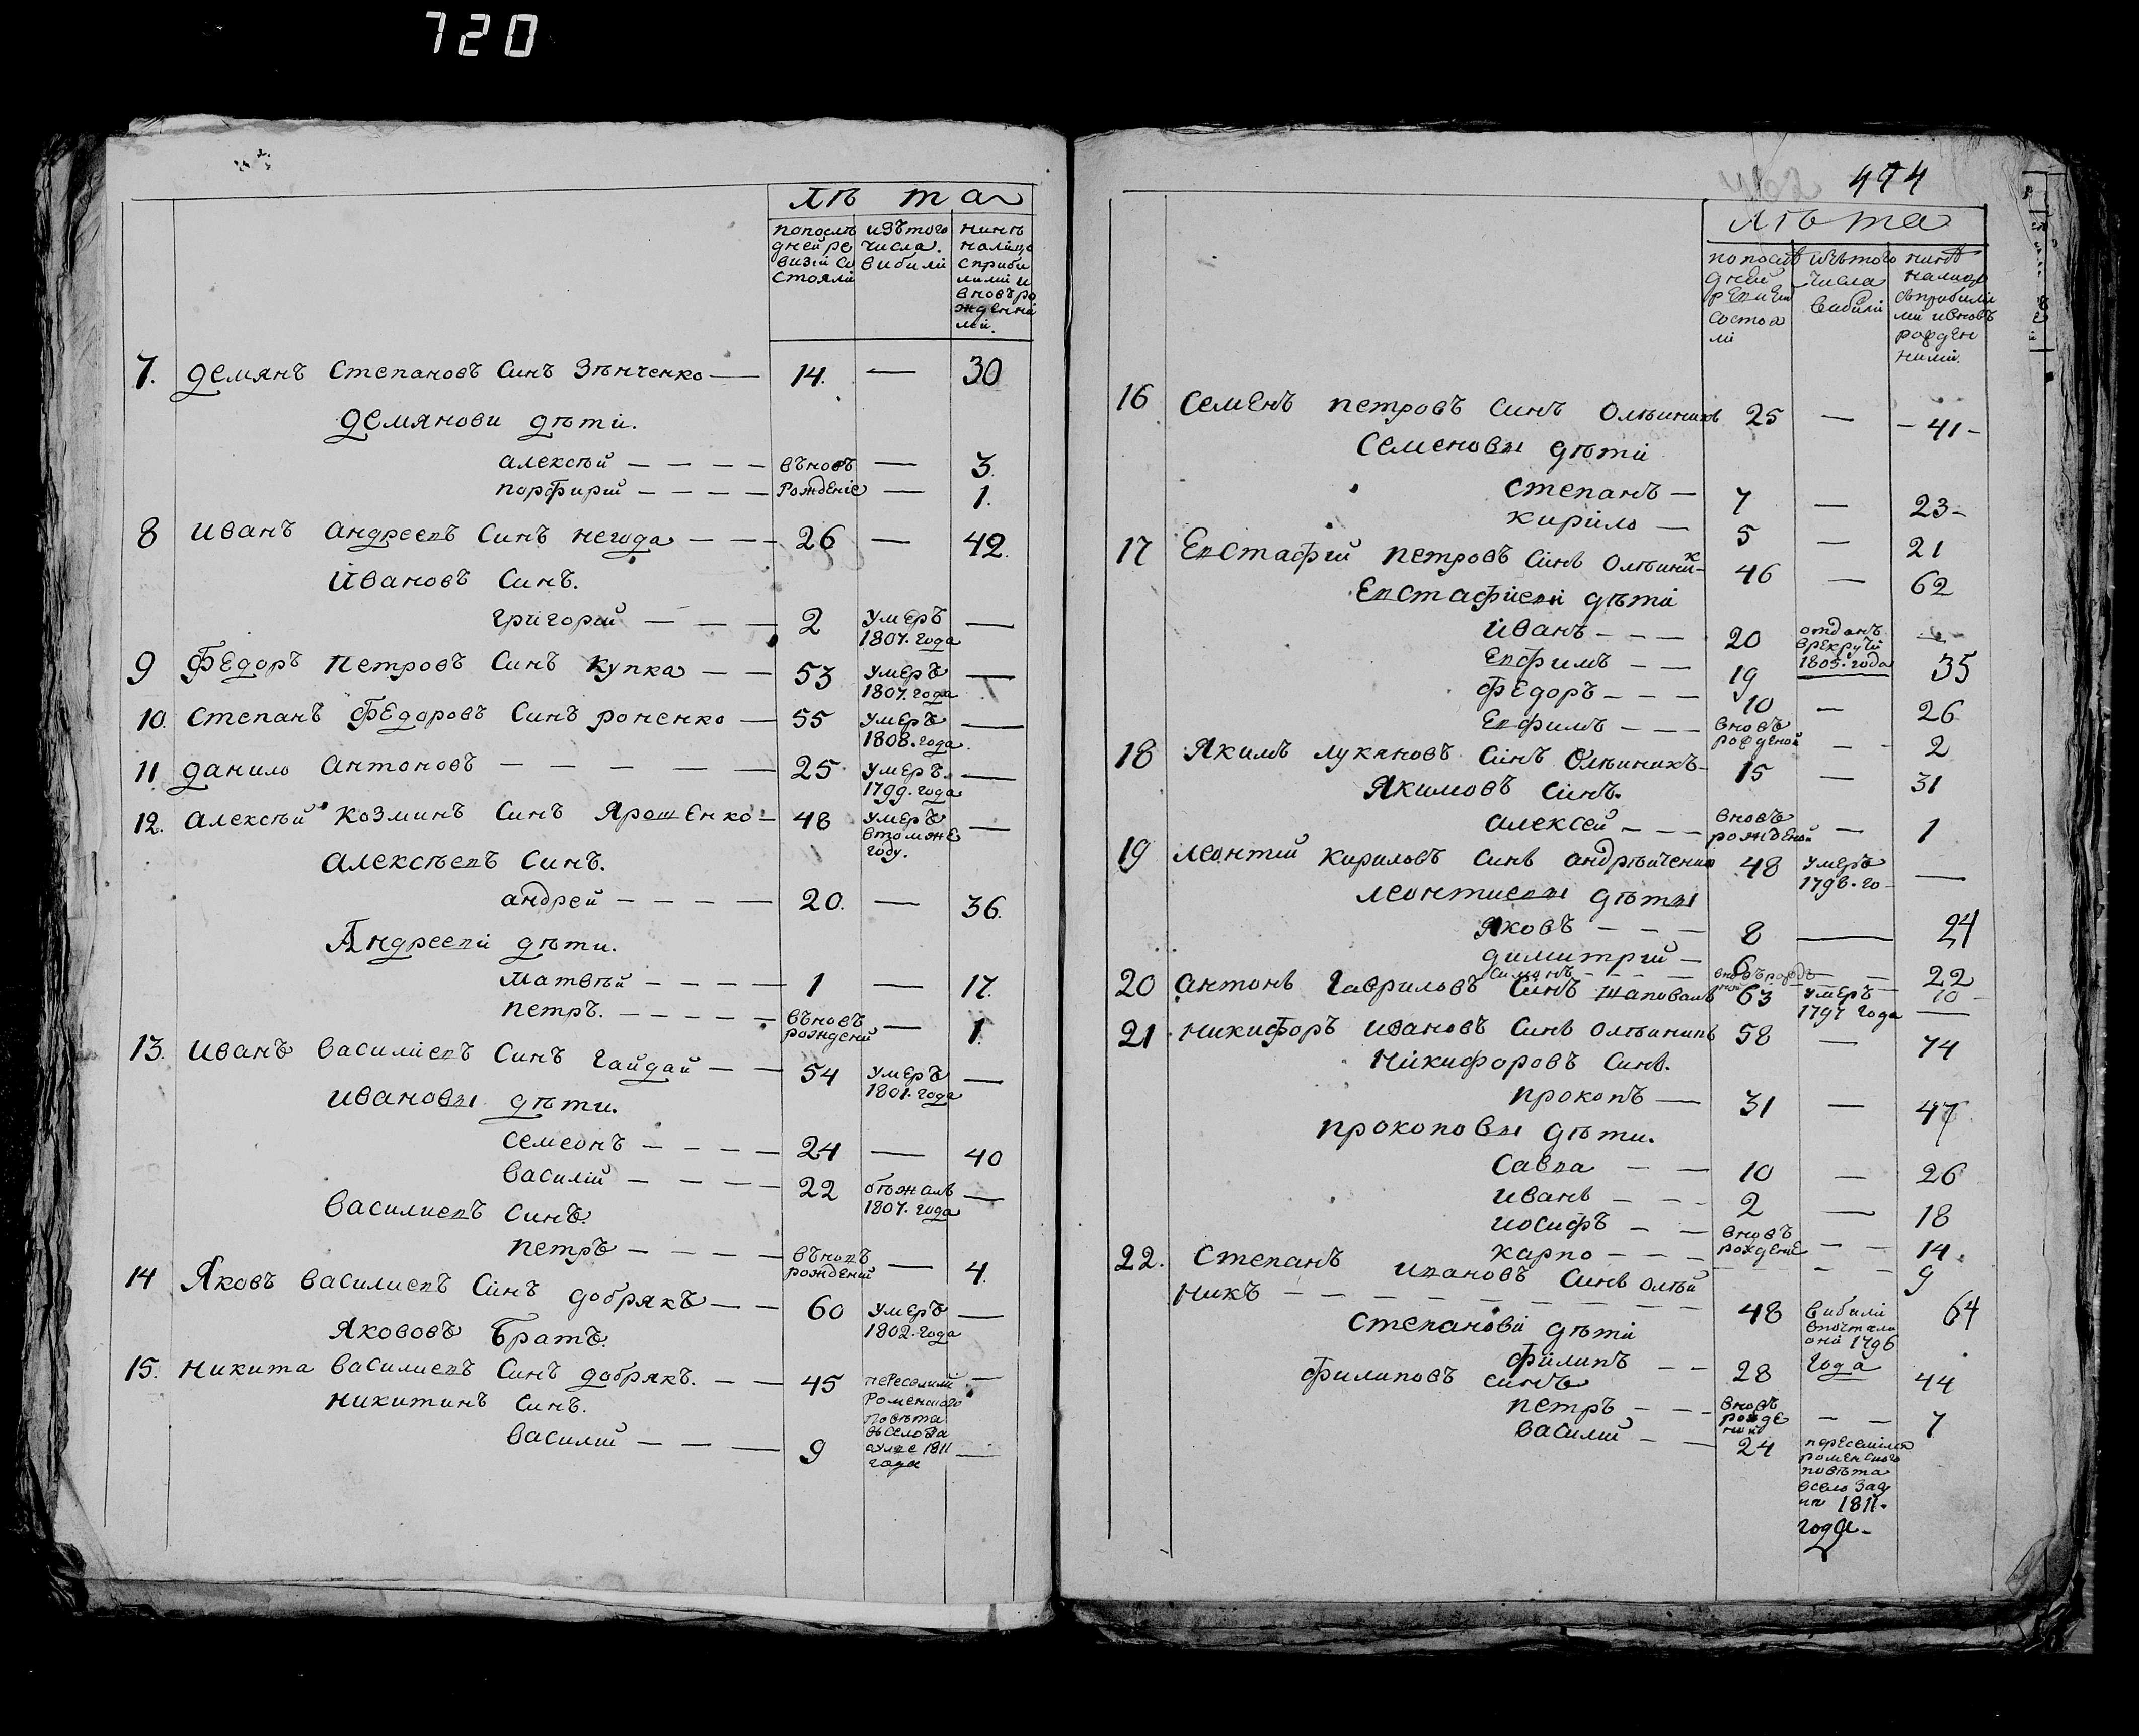 720
лѣта
попослѣ дней ревизіи состояли
изътого числа вибили
нинѣ налицо сприбилими и вновърожденнимi.
7. демянъ Степановъ Синъ Зѣнченко — 14. — 30
демянови дѣти.
алексѣй — — — — вѣновъ — 3.
порфирій — — — — рожденіе — 1.
8 иванъ андреевъ Синъ негода — — — 26 — 42.
ивановъ Синъ.
григорій — — — 2 умеръ 1807. года —
9 Федоръ петровъ Синъ купка — — 53 умеръ 1807. года —
10. Степанъ Федоровъ Синъ роненко — 55 умеръ 1808. года —
11 данило антоновъ — — — — — 25 умеръ 1799. года —
12. алексѣй козминъ Синъ Ярошенко — 48 умеръ втомже году. —
алексѣевъ Синъ.
андрей — — — — 20. — 36.
Андрееви дѣти.
матвѣй — — — — 1 — 17.
петръ. — — — — — вѣновъ рожденій — 1.
13. иванъ василиевъ Синъ гайдай — — 54 умеръ 1801. года —
ивановы дѣти.
семеонъ — — — — 24 — 40
василій — — — — 22 бѣжалъ 1807. года —
василиевъ Синъ.
петръ — — — — вѣновъ рожденій — 4.
14 Яковъ василиевъ Синъ добрякъ — — 60 умеръ 1802. года —
Якововъ братъ.
15. никита василиевъ Синъ добрякъ. — — 45 роменского повѣта 1811 года —
никитинъ Синъ.
василій — — — 9 —
474
лѣта
попослѣ дней ревизіи состояли
изѣтого числа вибили
нинѣ налицо съприбилими ивновъ рожденними.
16 Семенъ петровъ Синъ Олѣиникъ 25 — — 41 —
Семеновы дѣти
Степанъ — 7 — 23 —
кирило — 5 — 21
17 Евстафій петровъ Синъ Олѣиник — 46 — 62
Евстафиеви дѣти
иванъ — — — 20 отданъ врекрути 1805. года —
Евфимъ — — 19 35
Федоръ — — — 10 — 26
Евфимъ — — — вновъ рожденой — — 2
18 Якимъ лукяновъ Синъ Олѣиникъ — 15 — 31
Якимовъ Синъ.
алексей — — — вновъ рожденой — 1
19 леонтій кириловъ Синъ андрѣиченко 48 умеръ 1796. го —
леонтиевы дѣты
Яковъ — — — 8 — 24
димитрій — 6 — — 22
Симонъ — — — — вновърожд 10 —
20 антонъ гавриловъ Синъ шаповалъ 63 умеръ 1797 года —
21 никифоръ ивановъ Синъ олѣиникъ 58 — 74
никифоровъ Синъ.
прокопъ — 31 — 47
прокоповы дѣти.
Савва — — 10 — 26
иванъ — — — 2 — 18
иосифъ — — вновъ — — 14.
карпо — — — рождение — — 9
22. Степанъ ивановъ Синъ олѣй
никъ — — — — — — — — — — 48 вибили 1796 года 64
Степанови дѣти
филипъ — — 28 44
филиповъ синъ
петръ — — — вновъ рожде — — 7
василій — — 24 переселился роменского повѣта 1811. года —